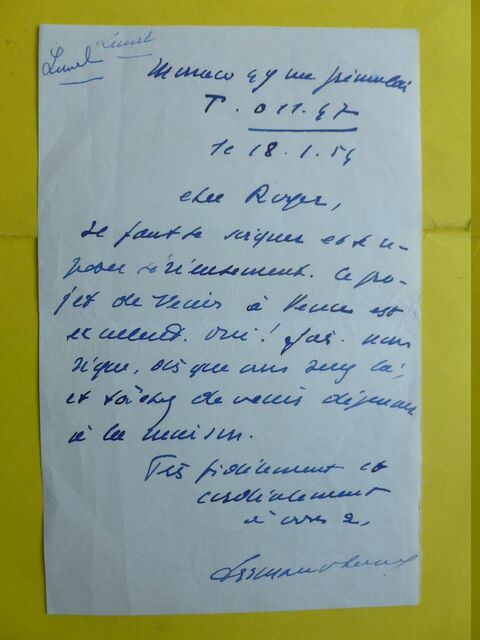 Lunel Lunel
Monaco 49 rue Grimaldi
T. 011.47
le 18.1.54
cher Roger,
Il faut se soigner et se re-
poser sérieusement. Ce pro-
jet de venir à Vence est
excellent. oui! fais-nous
signe, dès que vous serez là,
et tâchez de venir déjeuner
à la maison.
Très fidèlement et
cordialement
à vous 2,
Armand Lunel